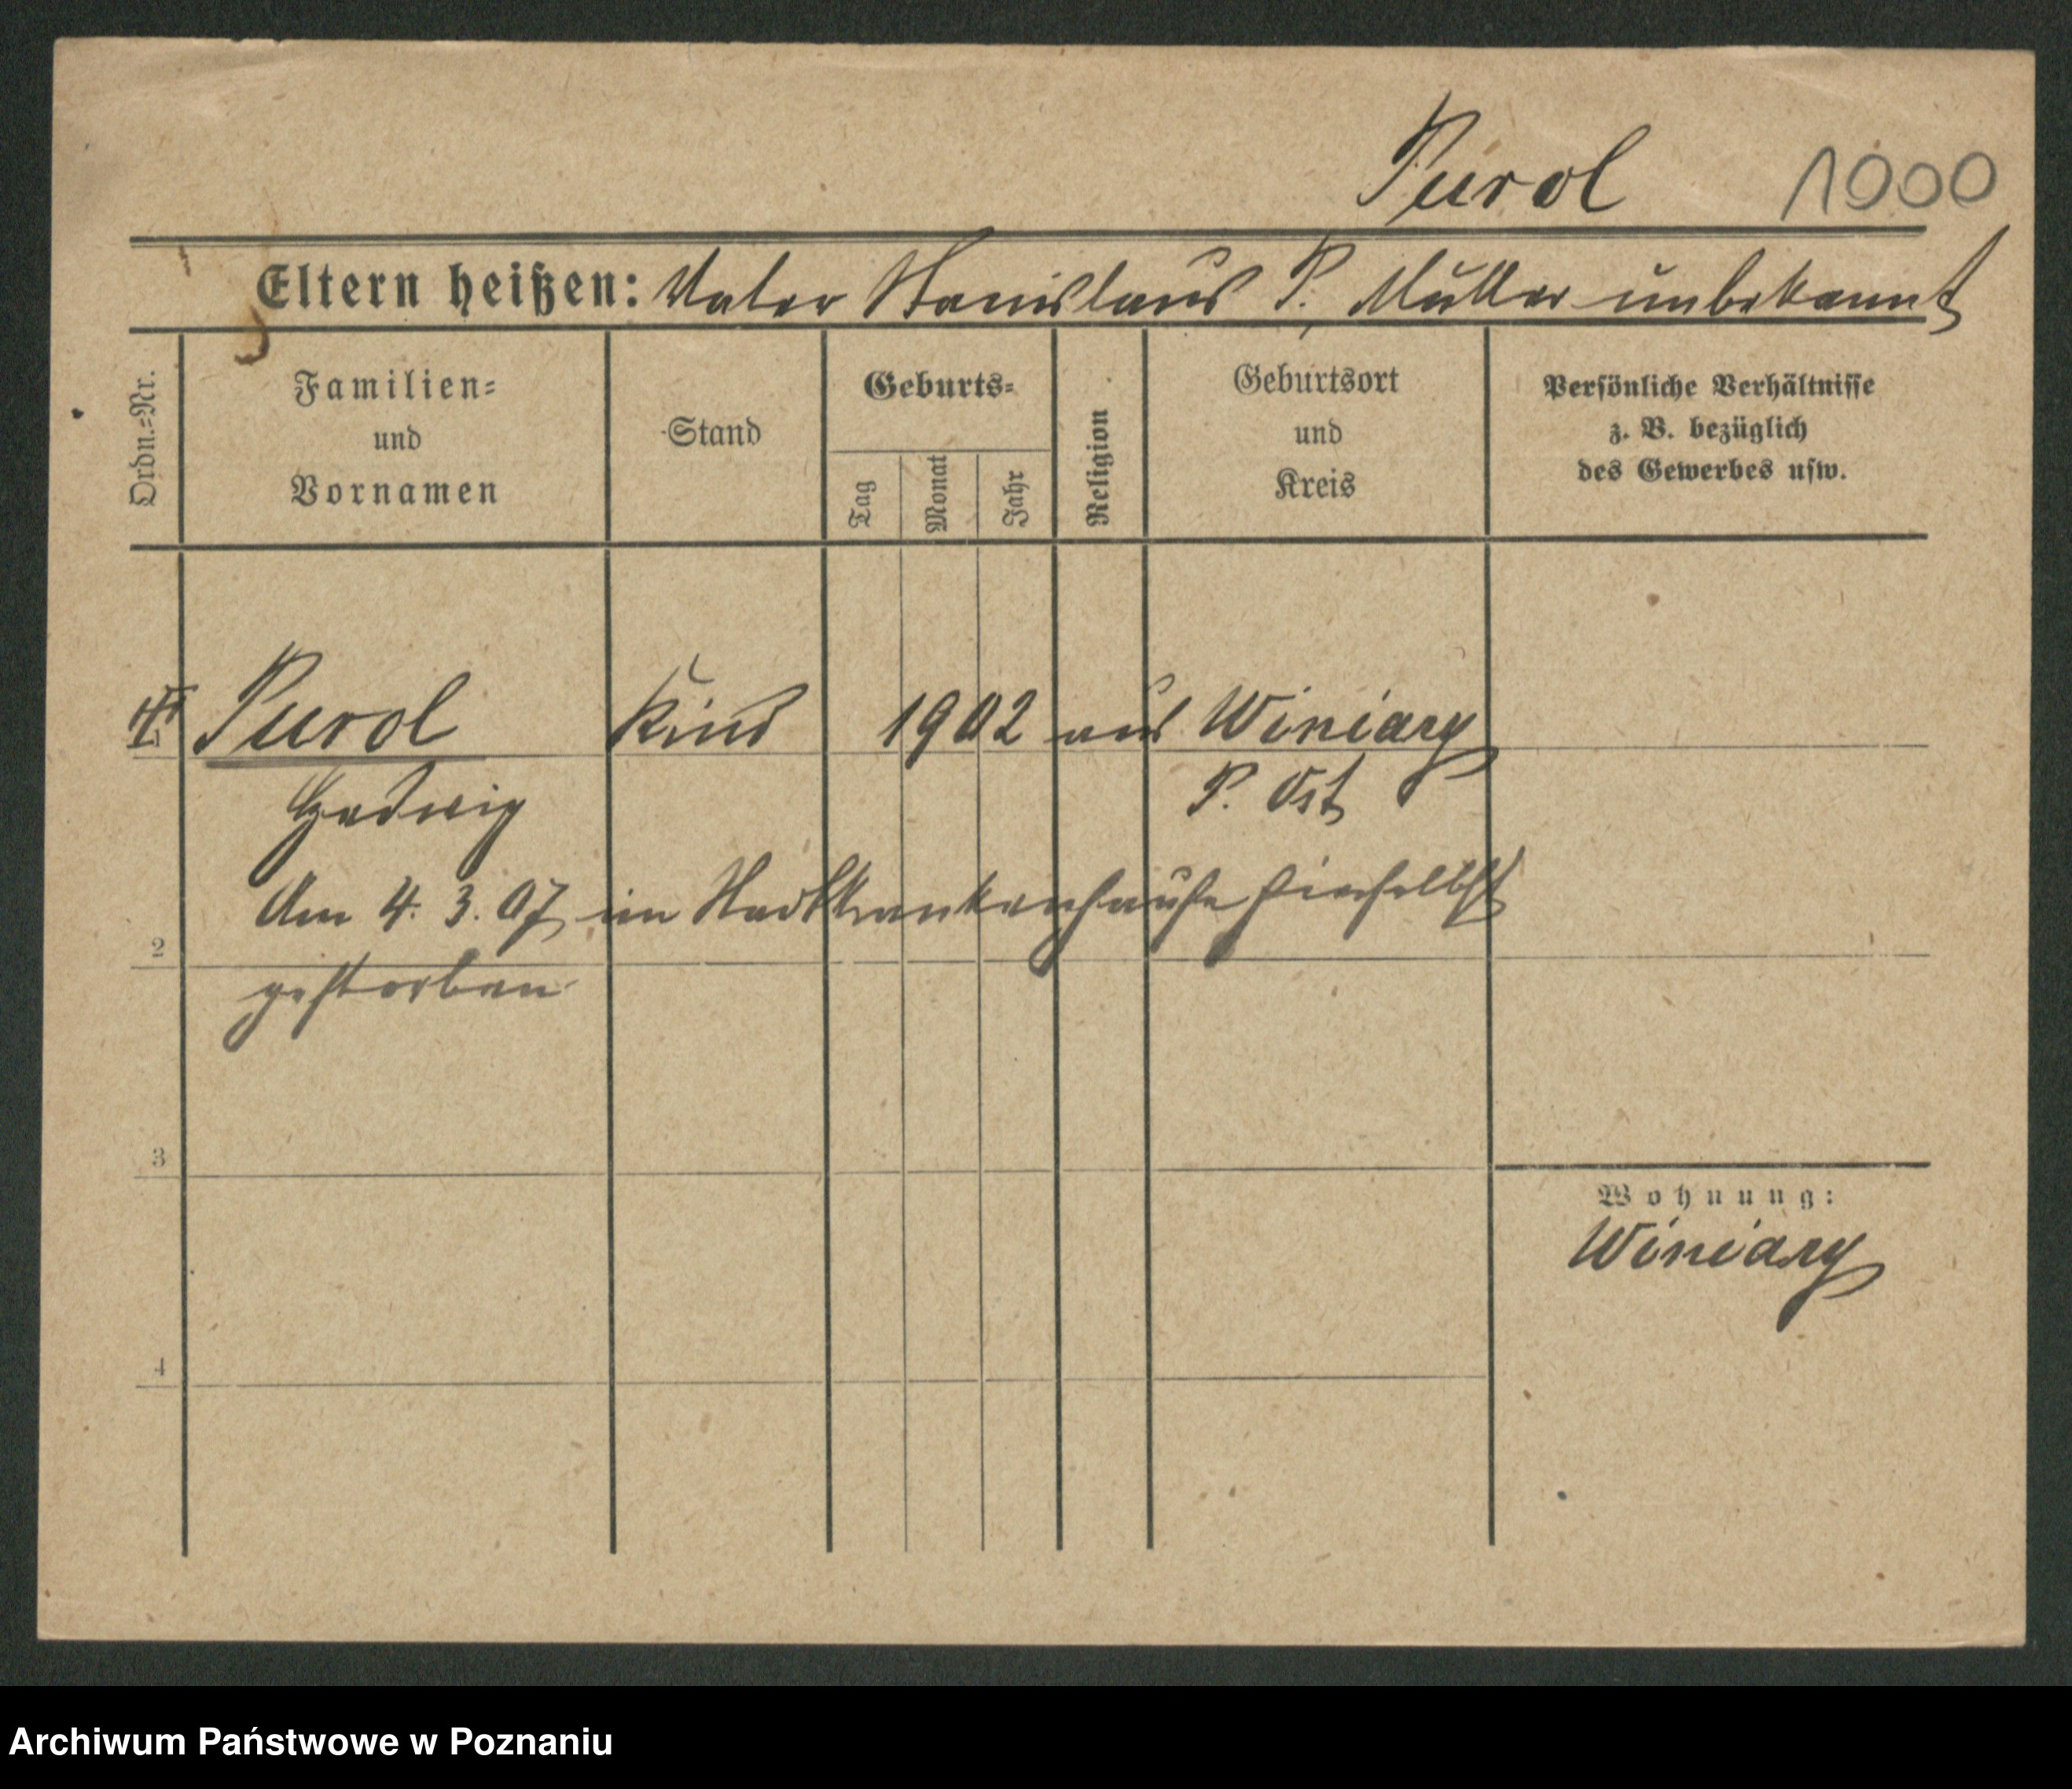 Purol 1000
Eltern heißen: Vater Stanislaus P. Mutter unbekannt
Ordn.-Nr.
Familien-
und
Vornamen
Stand
Geburts-
Tag
Monat
Jahr
Religion
Geburtsort
und
Kreis
Persönliche Verhältnisse
z. B. bezüglich
des Gewerbes usw.
Purol Kind 1902 aus Winiary
Hedwig P. Ost
Am 4. 3. 07 im Stadtkrankenhause hierselbst
2
gestorben
3
Wohnung:
Winiary
4
Archiwum Państwowe w Poznaniu